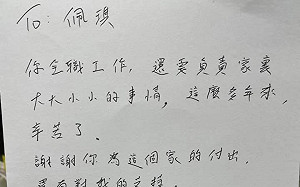 To: 佩瑱
你全職工作，還要負責家裏
大大小小的事情，這麼多年來，
辛苦了。
謝謝你為這個家的付出，
還有對我的支持